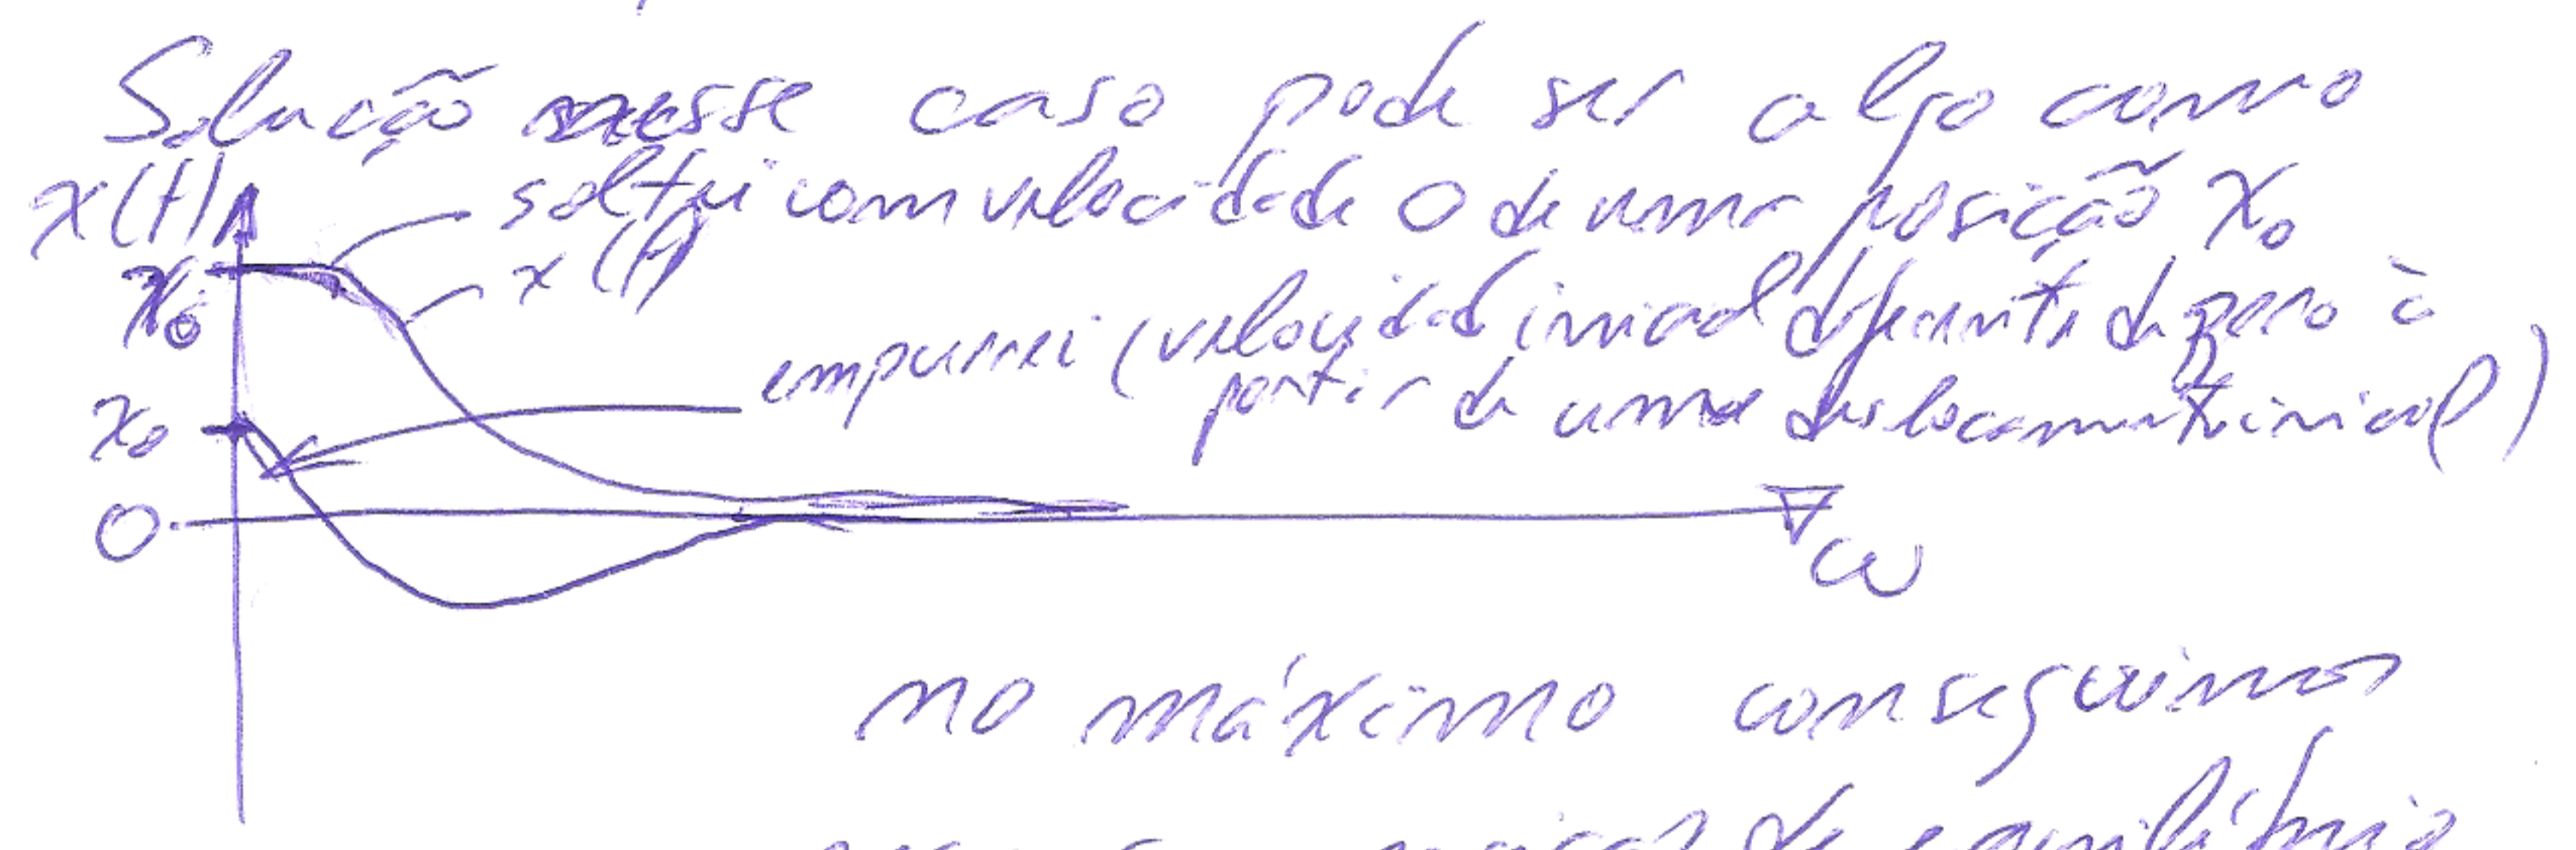 Solução nesse caso pode ser algo como
x(t)
soltei com velocidade 0 de uma posição x₀
x₀
x(t)
empurrei (velocidade inicial diferente de zero à
partir de uma deslocamento inicial)
x₀
0
ω
no máximo conseguimos
de equilíbrio